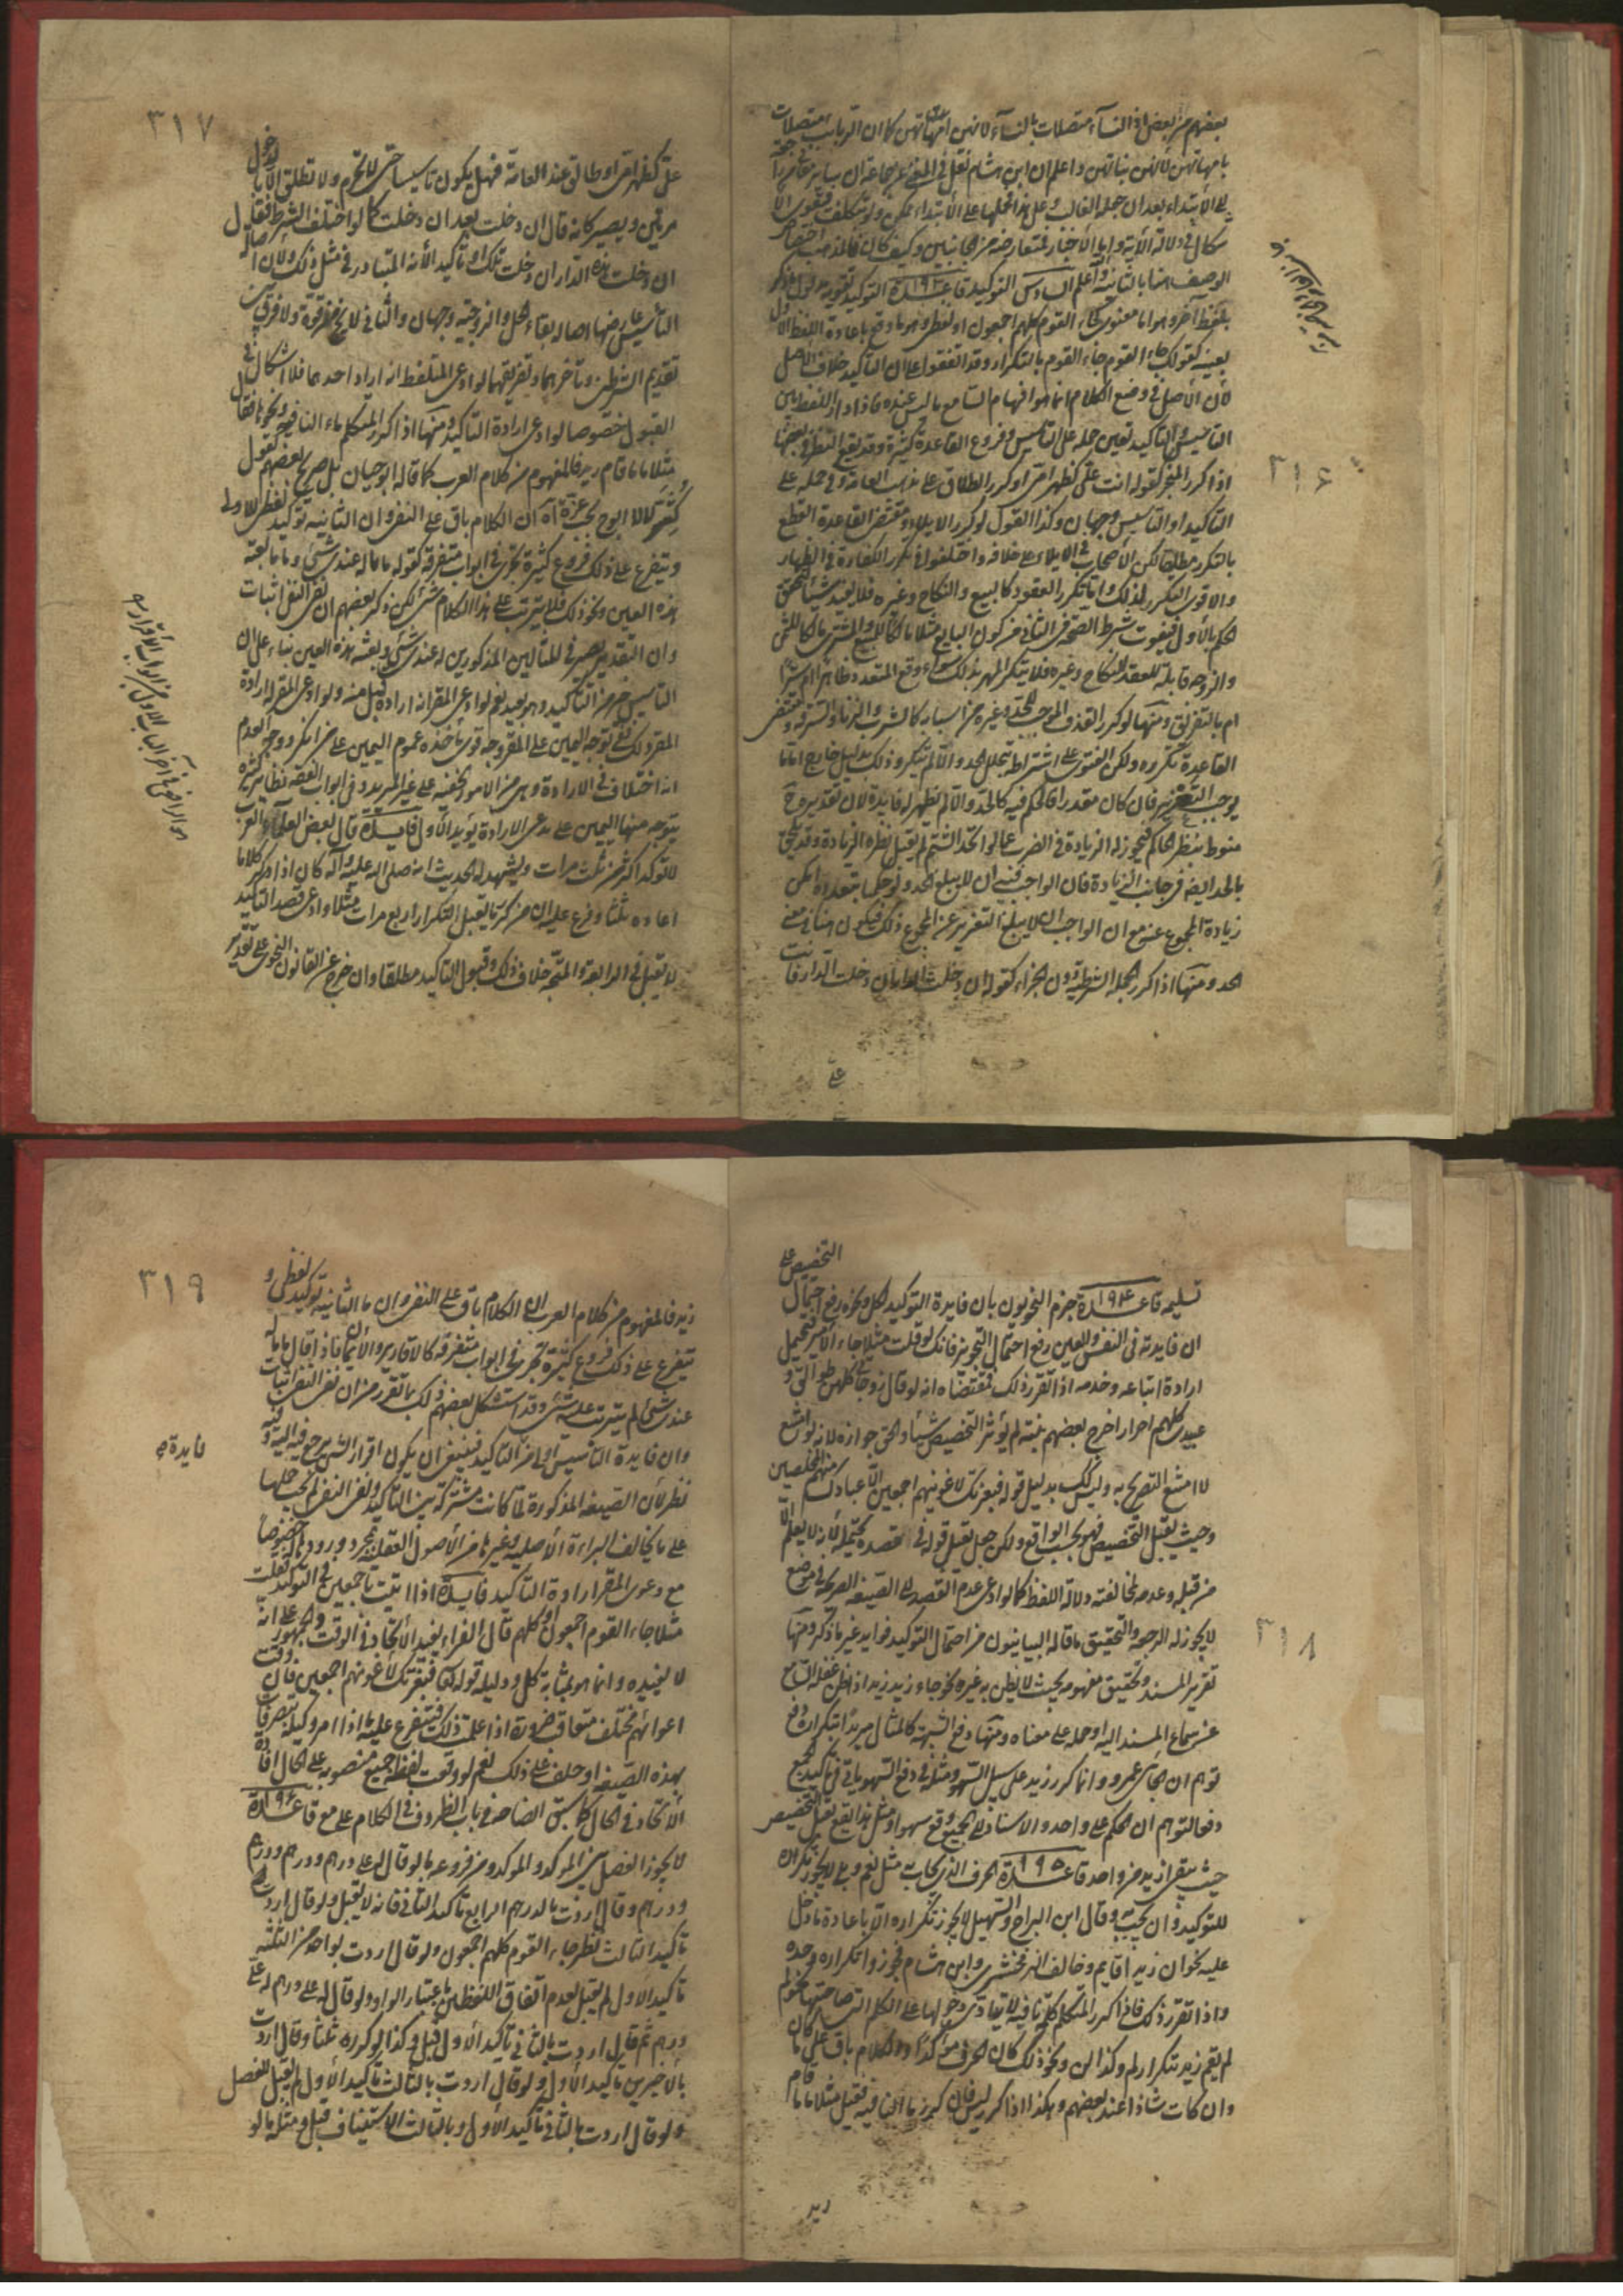 ٣١٦
بعضهم من بعض اذ النسآء متصلات بالنسآء لانهن امهاتهن كما ان الربايب متصلات
بامهاتهن لانهن بناتهن واعلم ان ابن هشام نقل في المغني عن جماعة ان
للابتداء بعد ان جعله الغالب وعلى هذا فحملها على الابتداء ممكن ولو بتكلف فيقوى الا
شكال في دلالة الآية واما الاخبار فمتعارضة من الجانبين وكيف كان فالمذهب اختصاص
الوصف هنا بالثانية والله اعلم السادس التوكيد قاعدة ١٩٣ التوكيد تقوية مدلول ما ذكر
بلفظ آخر وهو اما معنوي كجاء القوم كلهم اجمعون او لفظي وهو ما وقع باعادة اللفظ الاول
بعينه كقولك جاء القوم جاء القوم بالتكرار وقد اتفقوا على ان التاكيد خلاف الاصل
لان الاصل في وضع الكلام انما هو افهام السامع ما ليس عنده فاذا دار اللفظ بين
التاسيس والتاكيد تعين حمله على التاسيس وفروع القاعدة كثيرة وقد يقع النظر في بعضها
اذا كرر المنجز كقوله انت علي كظهر امي او كرر الطلاق على مذهب العامة وفي حمله على
التاكيد او التاسيس وجهان وكذا القول لو كرر الايلاء ومقتضى القاعدة القطع
بالتكرر مطلقا لكن الاصحاب في الايلاء على خلافه واختلفوا في تكرر الكفارة في الظهار
والاقوى التكرر لذلك واما تكرر العقود كالبيع والنكاح وغيره فلا يفيد شيئا لتحقق
الحكم بالاول فيفوت شرط الصحة في الثاني من كون البايع مثلا مالكا للمبيع والمشتري مالكا للثمن
والزوجة قابلة للعقد للنكاح وغيره فلا يتكرر المهر بذلك سواء وقع المتعدد ظاهرا ام سرا
ام بالتفريق ومنها لو كرر القذف الموجب للحد وغيره من اسبابه كالشرب والزنا والسرقة ومقتضى
القاعدة تكرره ولكن الفتوى على اشتراطه بتخلل الحد والا لم يتكرر وذلك بدليل خارج اما ما
يوجب التعزير فان كان مقدرا فالحكم فيه كالحد والا لم تظهر له فايدة لان تقديره ح
منوط بنظر الحاكم فيجوز له الزيادة في الضرب عما لو اتحد الشتم لم يقبل نظره الزيادة وقد يلحق
بالحد ايضا من جانب الزيادة فان الواجب فيه ان لا يبلغ الحد ولو حكما بتعدده امكن
زيادة المجموع عنه مع ان الواجب ان لا يبلغ التعزير عن المجموع ذلك فيكون هنا في معنى
الحد ومنها اذا كرر الجملة الشرطية دون الجزاء كقوله ان دخلت الدار ان دخلت الدار فانت
على
٣١٧
علي كظهر امي او طالق عند العامة فهل يكون تاسيسا حتى لا تحرم ولا تطلق الا بالدخول
مرتين ويصير كانه قال ان دخلت بعد ان دخلت كما لو اختلف الشرط فقال
ان دخلت هذه الدار ان دخلت تلك او تاكيدا لانه المتبادر في مثل ذلك ولان اصالة
التاسيس عارضها اصالة بقاء الحل والزوجية وجهان والثاني لا يخ من قوة ولا فرق بين
تقديم الشرطين وتاخرهما وتفريقهما ولو ادعى المتلفظ انه اراد احدهما فلا اشكال في
القبول خصوصا لو ادعى ارادة التاكيد ومنها اذا كرر المتكلم ماء النافية ونحوها فقال
مثلا ما ما قام زيد فالمفهوم من كلام العرب كما قاله ابو حيان بل صرح بعضهم كقول
كثير لا لا ابوح بحب عزة اه ان الكلام باق على النفي وان الثانية توكيد لفظي للاولى
ويتفرع على ذلك فروع كثيرة تجري في ابواب متفرقة كقوله ما ما له عندي شيئ وما ما بعته
هذه العين ونحو ذلك فلا يترتب على هذا الكلام شئ لكن ذكر بعضهم ان نفي النفي اثبات
وان التقدير يصير في المثالين المذكورين له عندي شيئ وبعته هذه العين بناء على ان
التاسيس خير من التاكيد وهو بعيد نعم لو ادعى المقر انه اراده قبل منه ولو ادعى المقر له ارادة
المقر ذلك ففي توجه اليمين على المقر وجه قوي ياخذه عموم اليمين على من انكر ووجه العدم
انه اختلاف في الارادة وهي من الامور الخفية على غير المريد وفي ابواب الفقه نظاير كثيرة
يتوجه منها اليمين على مدعي الارادة يؤيد الاول فايدة قال بعض العلماء العرب
لا تؤكد اكثر من ثلث مرات ويشهد له الحديث انه صلى الله عليه وآله كان اذا ذكر كلاما
اعاده ثلثا وفرع عليه ان من كرر ما يقبل التكرار اربع مرات مثلا وادعى قصد التاكيد
لا يقبل في الرابعة والمتجه خلاف ذلك وقبول التاكيد مطلقا وان خرج عن القانون النحوي على تقدير
٣١٨
تسليمه قاعدة ١٩٤ جزم النحويون بان فايدة التوكيد بكل ونحوه رفع احتمال التخصيص على
ان فايدته في النفس والعين رفع احتمال التجويز فانك لو قلت مثلا جاء الامير فيحتمل
ارادة اتباعه وخدمه اذا تقرر ذلك فمقتضاه انه لو قال زوجاتي كلهن طوالق و
عبيدي كلهم احرار اخرج بعضهم بنيته لم يؤثر التخصيص شيئا والحق جوازه لانه لو امتنع
لامتنع التصريح به وليس كك بدليل قوله فبعزتك لاغوينهم اجمعين الا عبادك منهم المخلصين
وحيث يقبل التخصيص فهو بحسب الواقع ولكن هل يقبل قوله في قصده يحتمله لانه لا يعلم الا
من قبله وعدمه لمخالفته دلالة اللفظ كما لو ادعى عدم القصد الى الصيغة الصريحة في موضع
لا يجوز له الرجعة والتحقيق ما قاله البيانيون من احتمال التوكيد فوايد غير ما ذكر ومنها
تقرير المسند وتحقيق مفهومه بحيث لا يظن به غيره نحو جاء زيد زيد اذا ظن غفلة السامع
عن سماع المسند اليه او حمله على معناه ومنها دفع الشبهة كالمثال مريدا بتكراره دفع
توهم ان الجائي عمرو وانما كرر زيد على سبيل السهو ومثله في دفع السهو ياتي في تاكيد الجمع
دفعا لتوهم ان الحكم على واحد والاسناد الى الجميع وقع سهوا ومثل هذا يقع يقبل التخصيص
حيث يبقى ازيد من واحد قاعدة ١٩٥ الحرف الذي يجاب به مثل نعم وبلى لا يجوز تكراره
للتوكيد وان يجيب به وقال ابن السراج والتسهيل لا يجوز تكراره الا باعادة ما دخل
عليه نحو ان زيدا قايم وخالف الزمخشري وابن هشام فجوزوا تكراره وحده
واذا تقرر ذلك فاذا كرر المتكلم كلمة نافية لا يعاد دخولها على الكلم التي صاحبتها نحو لم
لم يقم زيد بتكرار لم وكذا لن ونحو ذلك كان الحرف مؤكدا والكلام باق على ما كان
وان كانت شاذا عند بعضهم وهكذا اذا كرر ليس فان كرر ما النافية فقيل مثلا ما ما قام
زيد
٣١٩
زيد فالمفهوم من كلام العرب ان الكلام باق على النفي وان ما الثانية توكيد لفظي و
يتفرع على ذلك فروع كثيرة تجري في ابواب متفرقة كالاقارير والايمان فاذا قال ما ما له
عندي شيئ لم يترتب عليه شيئ وقد استشكل بعضهم ذلك بما تقرر من ان نفي النفي اثبات
وان فايدة التاسيس اولى من التاكيد فينبغي ان يكون اقرارا بشيئ يرجع فيه اليه وفيه
نظر لان الصيغة المذكورة لما كانت مشتركة بين التاكيد ونفي النفي لم يجب حملها
على ما يخالف البراءة الاصلية وغيرها من الاصول العقلية بمجرد ورودها خصوصا
مع دعوى المقر ارادة التاكيد فايدة اذا اتيت باجمعين في التوكيد فقلت
مثلا جاء القوم اجمعون او كلهم قال الفراء يفيد الاتحاد في الوقت والجمهور على انه
لا يفيده وانما هو بمثابة كل ودليله قوله تعالى فبعزتك لاغوينهم اجمعين فان وقت
اغوائهم مختلف متعاقب ضرورة اذا علمت ذلك فيتفرع عليه ما اذا امر وكيله بتصرفات
بهذه الصيغة او حلف على ذلك نعم لو وقعت لفظة جميع منصوبة على الحال افادة
الاتحاد في الحال كما سبق ايضا في باب الظروف في الكلام على مع قاعدة ١٩٦
لا يجوز الفصل بين المؤكد والمؤكد ومن فروعه ما لو قال له علي درهم ودرهم ودرهم
ودرهم وقال اردت بالدرهم الرابع تاكيد الثاني فانه لا يقبل ولو قال اردت به
تاكيد الثالث نظر جاء القوم كلهم اجمعون ولو قال اردت بواحد من الثلثة
تاكيد الاول لم يقبل لعدم اتفاق اللفظين باعتبار الواو ولو قال له علي درهم له علي
درهم ثم قال اردت بالثاني تاكيد الاول قبل وكذا لو كرره ثلثا وقال اردت
بالاخيرين تاكيد الاول ولو قال اردت بالثالث تاكيد الاول لم يقبل للفصل
ولو قال اردت بالثاني تاكيد الاول وبالثالث الاستيناف قبل ومثله ما لو
فايدة